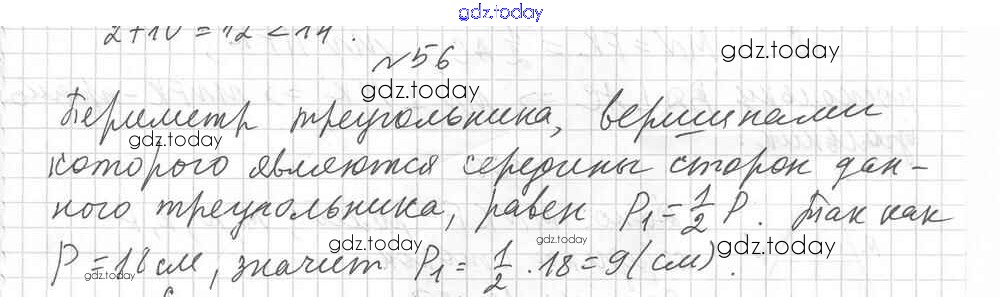 gdz.today
2+10=12<14.
№56
gdz.today
gdz.today
Периметр треугольника, вершинами
gdz.today
gdz.today
которого являются середины сторон дан-
ного треугольника, равен P₁=1/2 P. Так как
gdz.today
gdz.today
gdz.today
P=18см, значит P₁= 1/2 ·18=9(см).
gdz.today